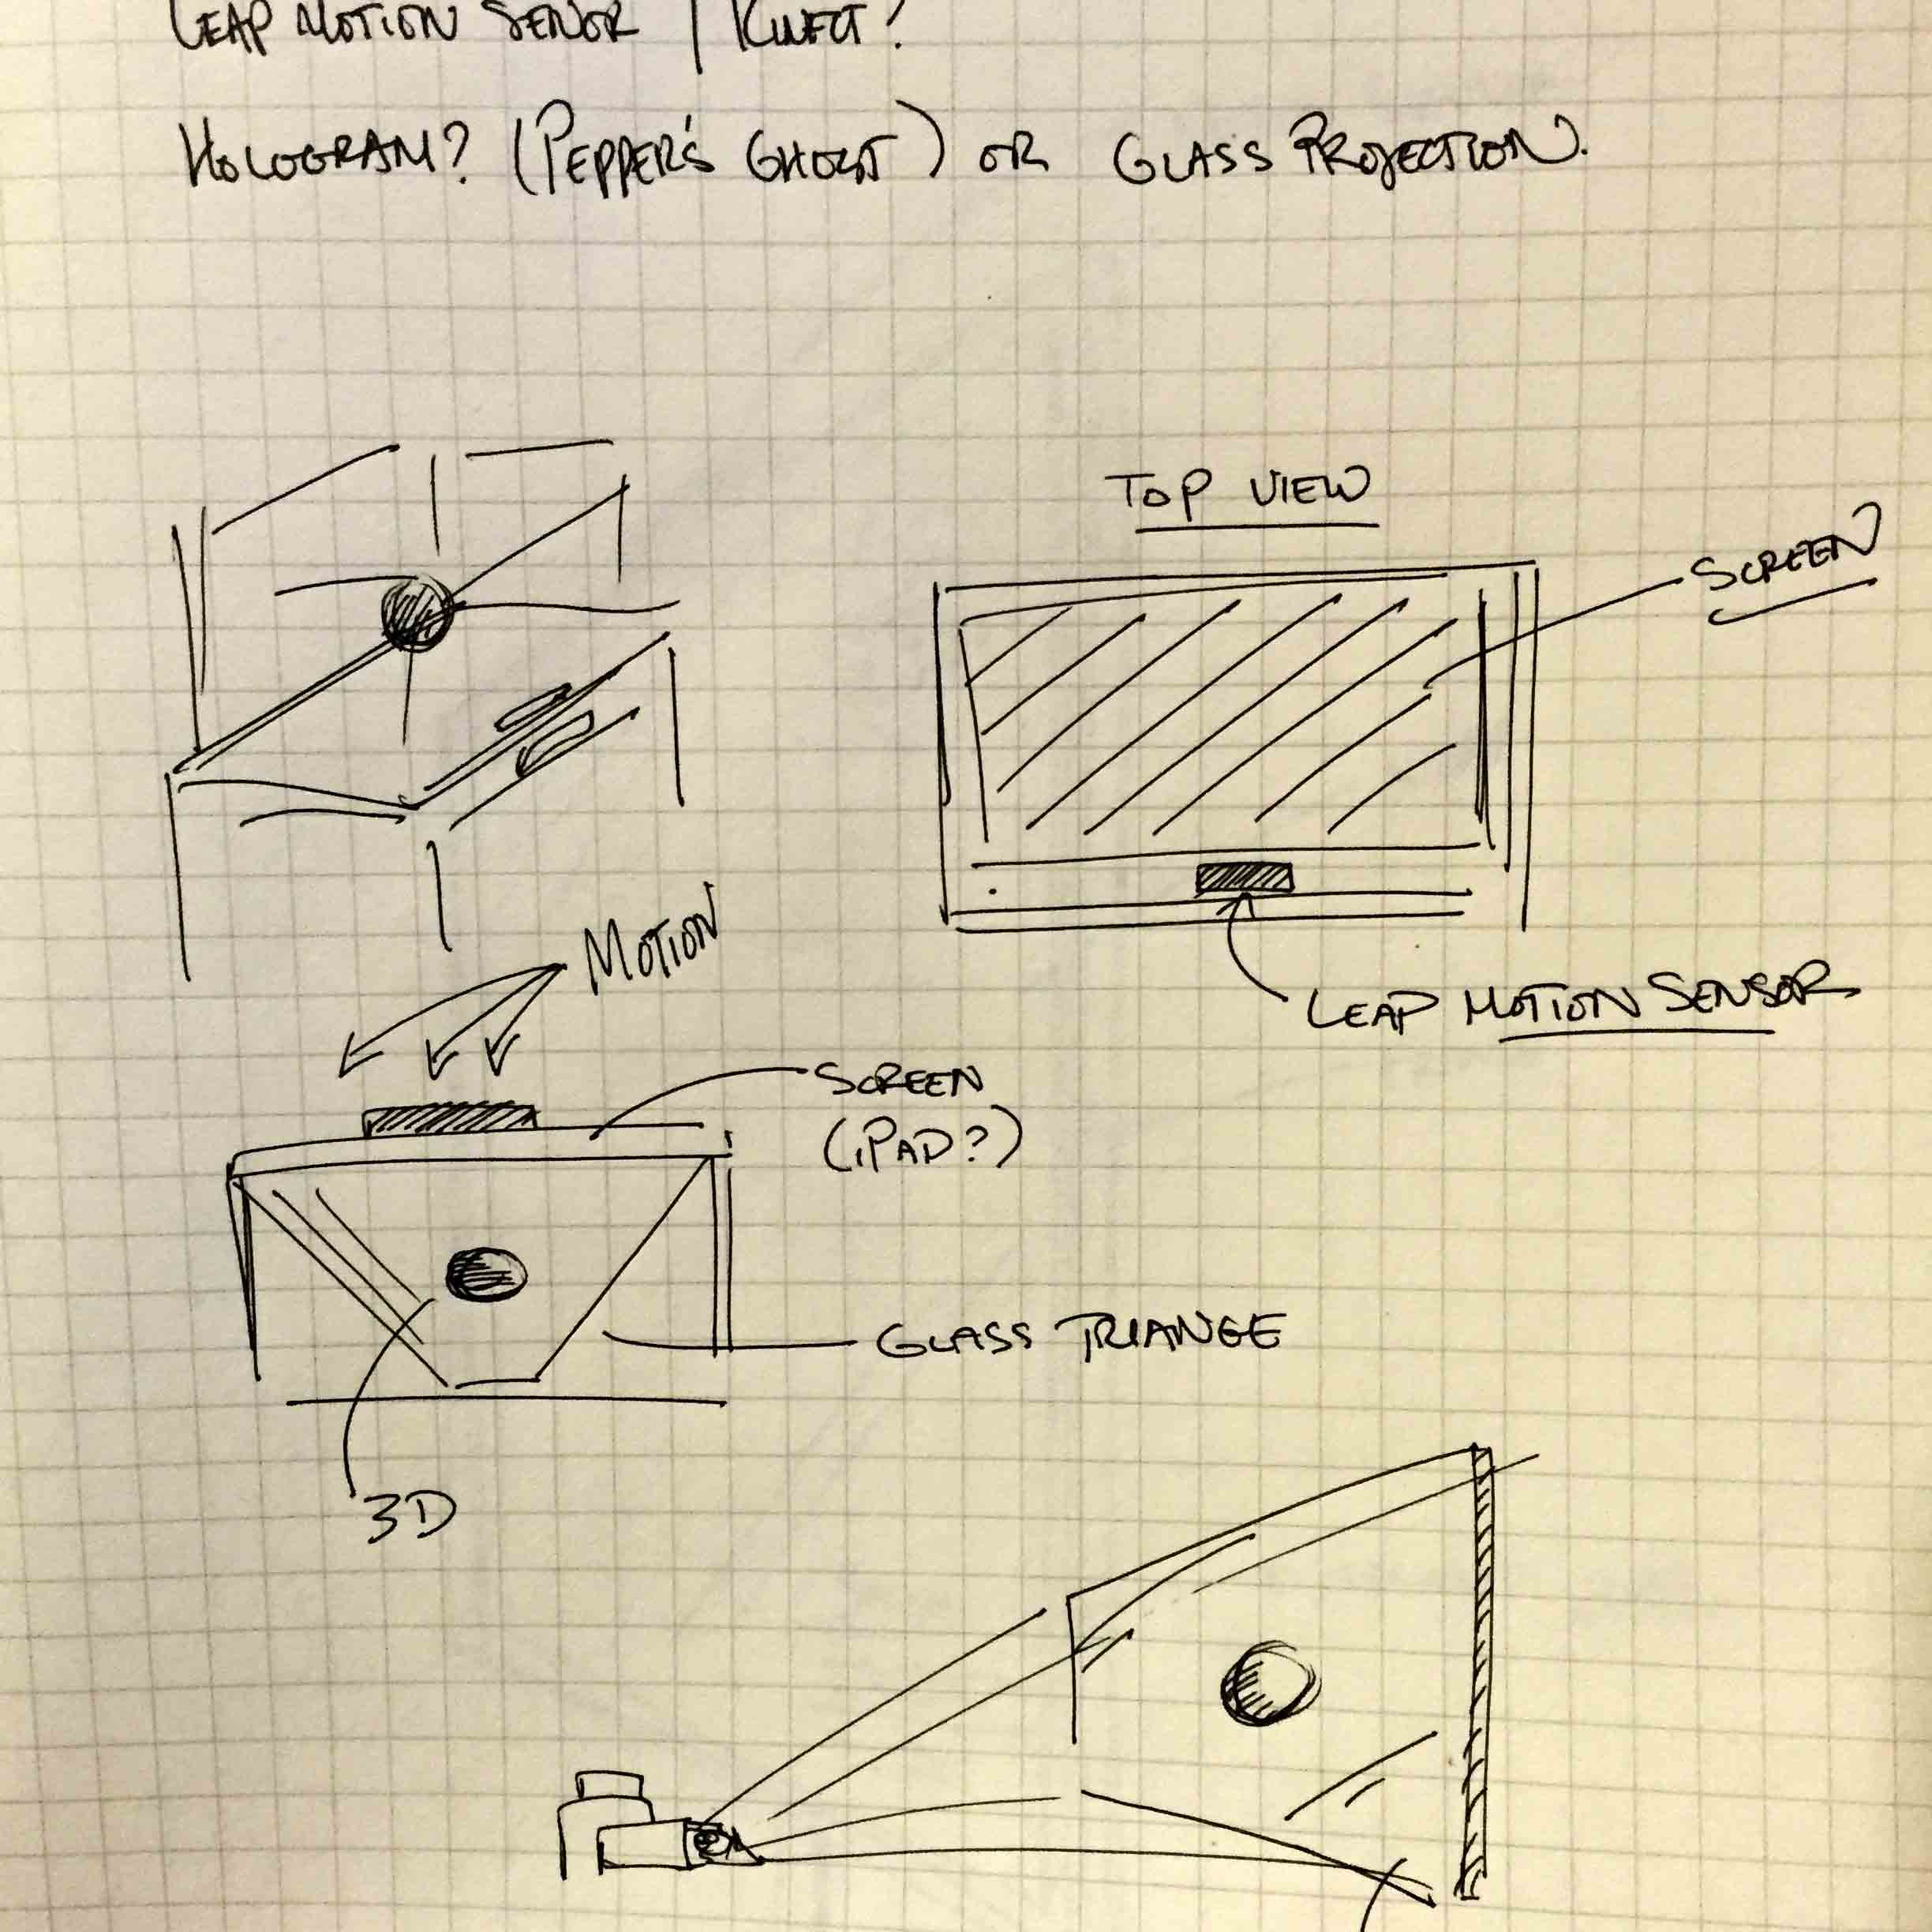 LEAP MOTION SENOR / KINECT?
HOLOGRAM? (PEPPER'S GHOST) OR GLASS PROJECTION.
TOP VIEW
SCREEN
MOTION
LEAP MOTION SENSOR
SCREEN
(iPAD?)
GLASS TRIANGE
3D